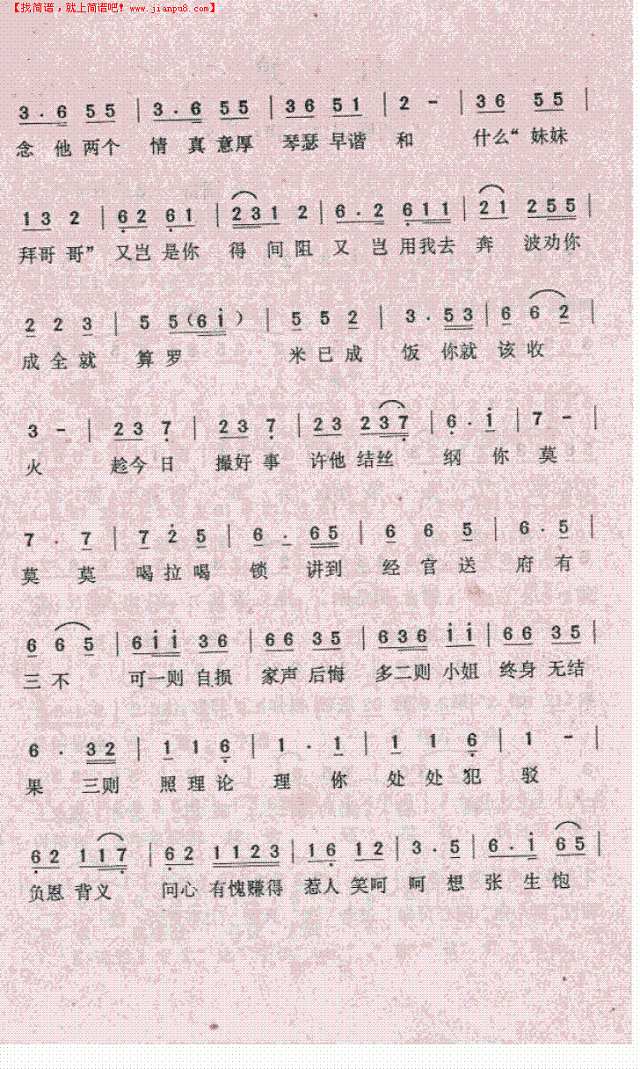 【找简谱，就上简谱吧! www.jianpu8.com】
3 . 6 5 5 | 3 . 6 5 5 | 3 6 5 1 | 2 - | 3 6 5 5 |
念 他 两个 情 真 意厚 琴瑟 早谐 和 什么“ 妹妹
1 3 2 | 6 2 6 1 | 2 3 1 2 | 6 . 2 6 1 1 | 2 1 2 5 5 |
拜哥 哥” 又岂 是你 得 间阻 又 岂 用我去 奔 波劝你
2 2 3 | 5 5 ( 6 i ) | 5 5 2 | 3 . 5 3 | 6 6 2 |
成 全 就 算 罗 米 已 成 饭 你就 该 收
3 - | 2 3 7 | 2 3 7 | 2 3 2 3 7 | 6 . i | 7 - |
火 趁今 日 撮好 事 许他 结丝 纲 你 莫
7 . 7 | 7 2 5 | 6 . 6 5 | 6 6 5 | 6 . 5 |
莫 莫 喝 拉 喝 锁 讲到 经 官 送 府 有
6 6 5 | 6 i i 3 6 | 6 6 3 5 | 6 3 6 i i | 6 6 3 5 |
三 不 可一则 自损 家声 后悔 多二则 小姐 终身 无结
6 . 3 2 | 1 1 6 | 1 . 1 | 1 1 6 | 1 - |
果 三则 照 理 论 理 你 处 处 犯 驳
6 2 1 1 7 | 6 2 1 1 2 3 | 1 6 1 2 | 3 . 5 | 6 . i 6 5 |
负恩 背义 问心 有愧赚得 惹人 笑呵 呵 想 张 生 饱